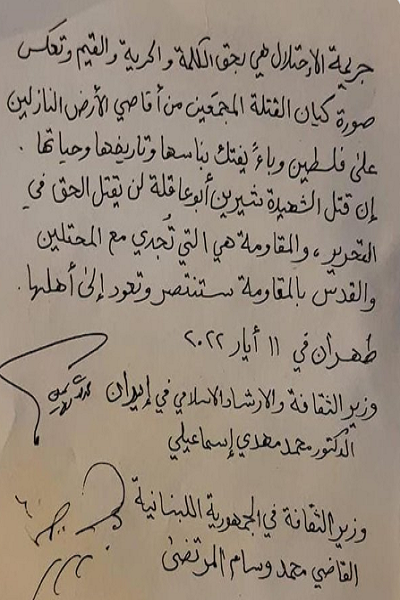 جريمة الإحتلال هي بحق الكلمة والحرية والقيم وتعكس
صورة كيان القتلة المجمّعين من أقاصي الأرض النازلين
على فلسطين وباءً يفتك بناسها وتاريخها وحياتها .
إن قتل الشهيدة شيرين أبو عاقلة لن يقتل الحق في
التحرير ، والمقاومة هي التي تُجدي مع المحتلين
والقدس بالمقاومة ستنتصر وتعود إلى أهلها .
طهران في ١١ أيار ٢٠٢٢
وزير الثقافة والارشاد الاسلامي في إيران
الدكتور محمد مهدي إسماعيلي
وزير الثقافة في الجمهورية اللبنانية
القاضي محمد وسام المرتضى